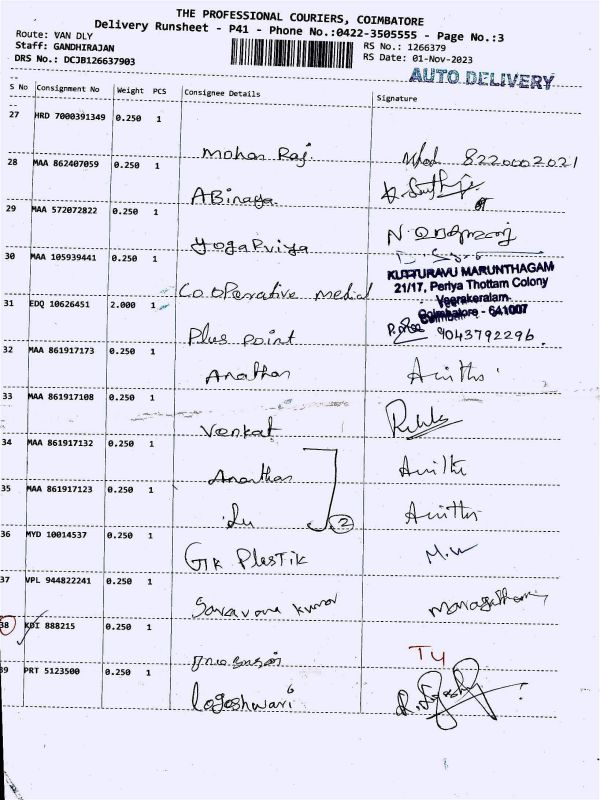 THE PROFESSIONAL COURIERS, COIMBATORE
Delivery Runsheet - P41 - Phone No.:0422-3505555 - Page No.:3
Route: VAN DLY
Staff: GANDHIRAJAN
DRS No.: DCJB126637903
RS No.: 1266379
RS Date: 01-Nov-2023
AUTO DELIVERY
S No Consignment No Weight PCS Consignee Details Signature
27 HRD 7000391349 0.250 1
Mohan Raj. 8220002021
28 MAA 862407059 0.250 1
ABinaya
29 MAA 572072822 0.250 1
YogaPriya
30 MAA 105939441 0.250 1
Cooperative medical
KUTTURAVU MARUNTHAGAM
21/17, Periya Thottam Colony
Veerakeralam
Coimbatore - 641007
31 EDQ 10626451 2.000 1
Plus point 9043792296.
32 MAA 861917173 0.250 1
Ananthan
33 MAA 861917108 0.250 1
Venkat
34 MAA 861917132 0.250 1
Ananthan
35 MAA 861917123 0.250 1
2
36 MYD 10014537 0.250 1
GTR Plastik
37 VPL 944822241 0.250 1
Saravana Kumar
38 KDI 888215 0.250 1
39 PRT 5123500 0.250 1
Logeshwari